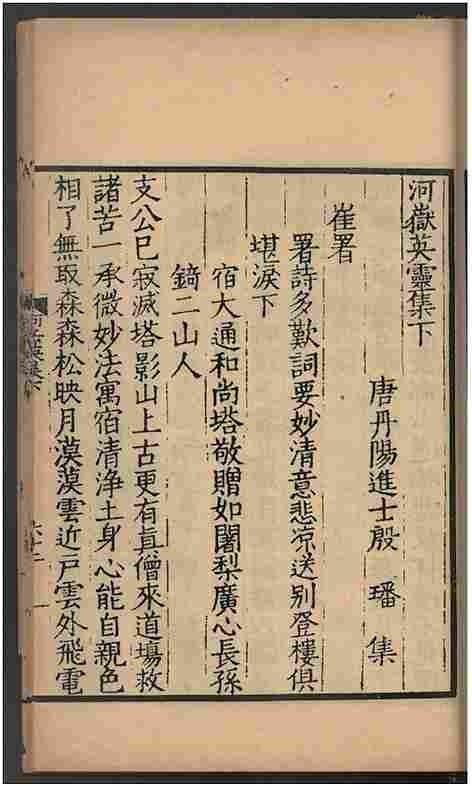 河嶽英靈集下
唐丹陽進士殷 璠 集
崔署
署詩多歎詞要妙清意悲凉送别登樓俱
堪淚下
宿大通和尚塔敬贈如闍梨廣心長孫
錡二山人
支公已寂滅塔影山上古更有真僧來道場救
諸苦一承微妙法寓宿清浄土身心能自親色
相了無取森森松映月漠漠雲近戸雲外飛電